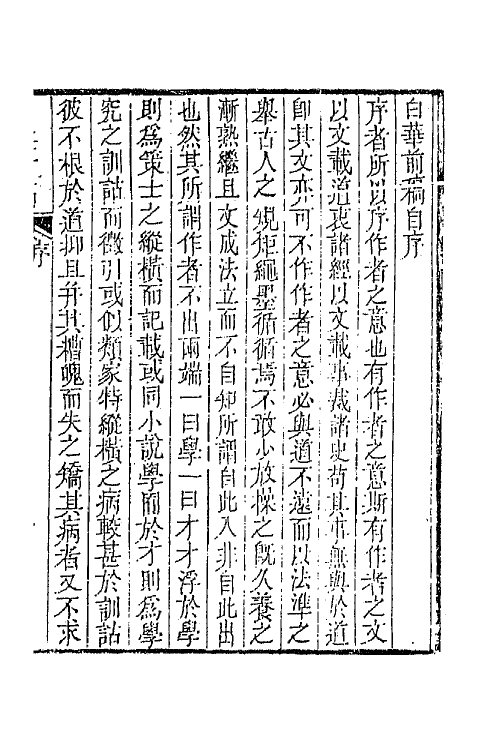 白華前稿自序
序者所以序作者之意也有作者之意斯有作者之文
以文載道衷諸經以文載事裁諸史苟其事無與於道
卽其文亦可不作作者之意必與道不遠而以法準之
舉古人之規矩繩墨循循焉不敢少放操之旣久養之
漸熟繼且文成法立而不自知所謂自此入非自此出
也然其所謂作者不出兩端一曰學一曰才才浮於學
則爲策士之縱橫而記載或同小說學踰於才則爲學
究之訓詁而徵引或似類家特縱橫之病較甚於訓詁
彼不根於道抑且幷其糟魄而失之矯其病者又不求
序